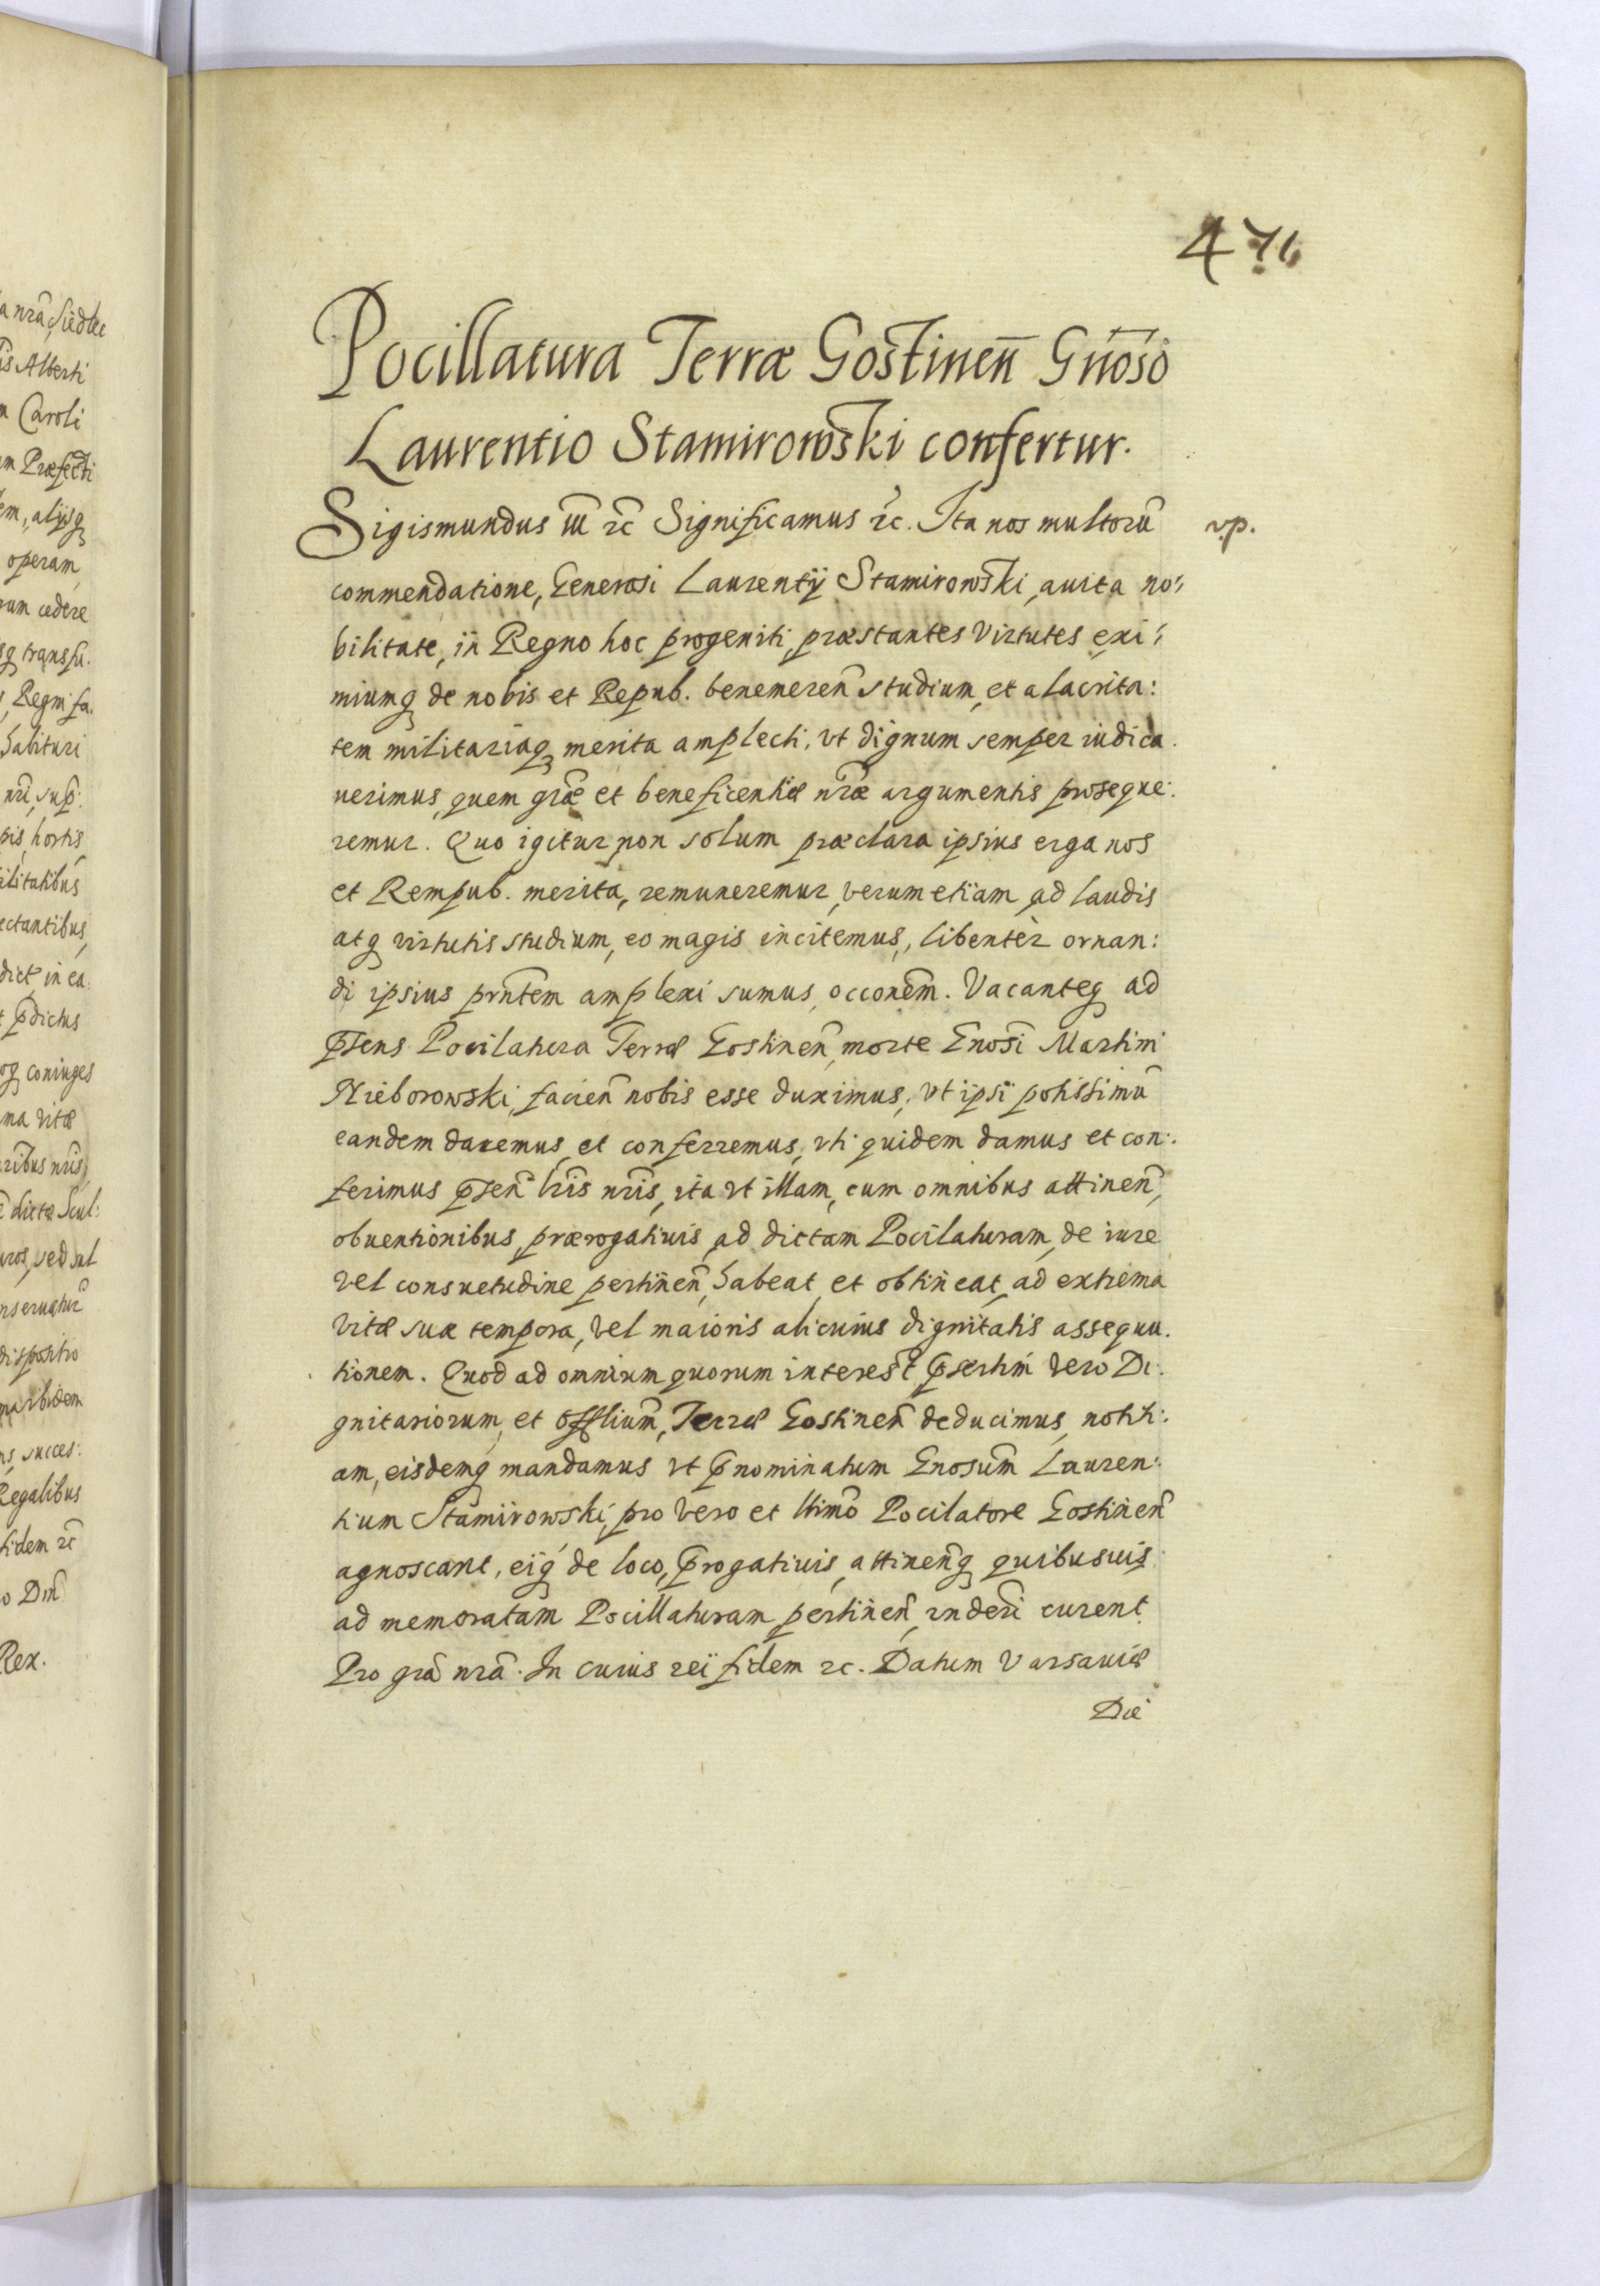 476
Pocillatura Terræ Gostinen̄ Gnōso
Laurentio Stamirowski confertur.
Sigismundus III rc̄ Significamus rc̄. Ita nos multorū
v.p.
commendatione, Generosi Laurentÿ Stamirowski, auita no:
bilitate, in Regno hoc progeniti, præstantes Virtutes exi:
miumq de nobis et Repub. benemeren̄ studium, et alacrita:
tem militariaq merita amplecti, vt dignum semper iudica.
uerimus, quem grāe et beneficentiæ nrāe argumentis proseque:
remur. Quo igitur non solum præclara ipsius erga nos
et Rempub. merita, remuneremur, verum etiam ad laudis
atq virtutis studium, eo magis incitemus, libentèr ornan:
di ipsius prn̄tem amplexi sumus, occonēm. Vacanteq ad
p̄sens Pocilatura Terræ Gostinen̄, morte Gnosī Martini
Nieborowski, facien̄ nobis esse duximus, vt ipsi potissimū
eandem daremus, et conferremus, vti quidem damus et con:
ferimus p̄sen̄ lrīs nrīs, ita vt illam, cum omnibus attinen̄,
obuentionibus, prærogatiuis, ad dictam Pocilaturam, de iure
vel consuetudine pertinen̄, habeat, et obtineat, ad extrema
vitæ suæ tempora, vel maioris alicuius dignitatis assequu.
tionem. Quod ad omnium quorum interest p̄sertim vero Di:
gnitariorum, et offliūm, Terræ Gostinen̄ deducimus, notiti:
am, eisdemq mandamus vt p̄nominatum Gnosūm Lauren:
tium Stamirowski, pro vero et ltimō Pocilatore Gostinen̄
agnoscant, eiq de loco, p̄rogatiuis, attinen̄q quibusuis
ad memoratam Pocillaturam pertinen̄, rnderī curent
Pro grā nrā. In cuius rei fidem rc. Datum Varsauiæ
Die
a nrā, Siedlec
Alberti
Caroli
Præfecti
em, alijsq
operam
cedere
Regni fa.
habituri
hortis
ectantibus
in ea
p̄dictus
coniuges
vitæ
nrīs
dictæ Scul:
dispositio
succes:
Regalibus
fidem rc̄
Rex.